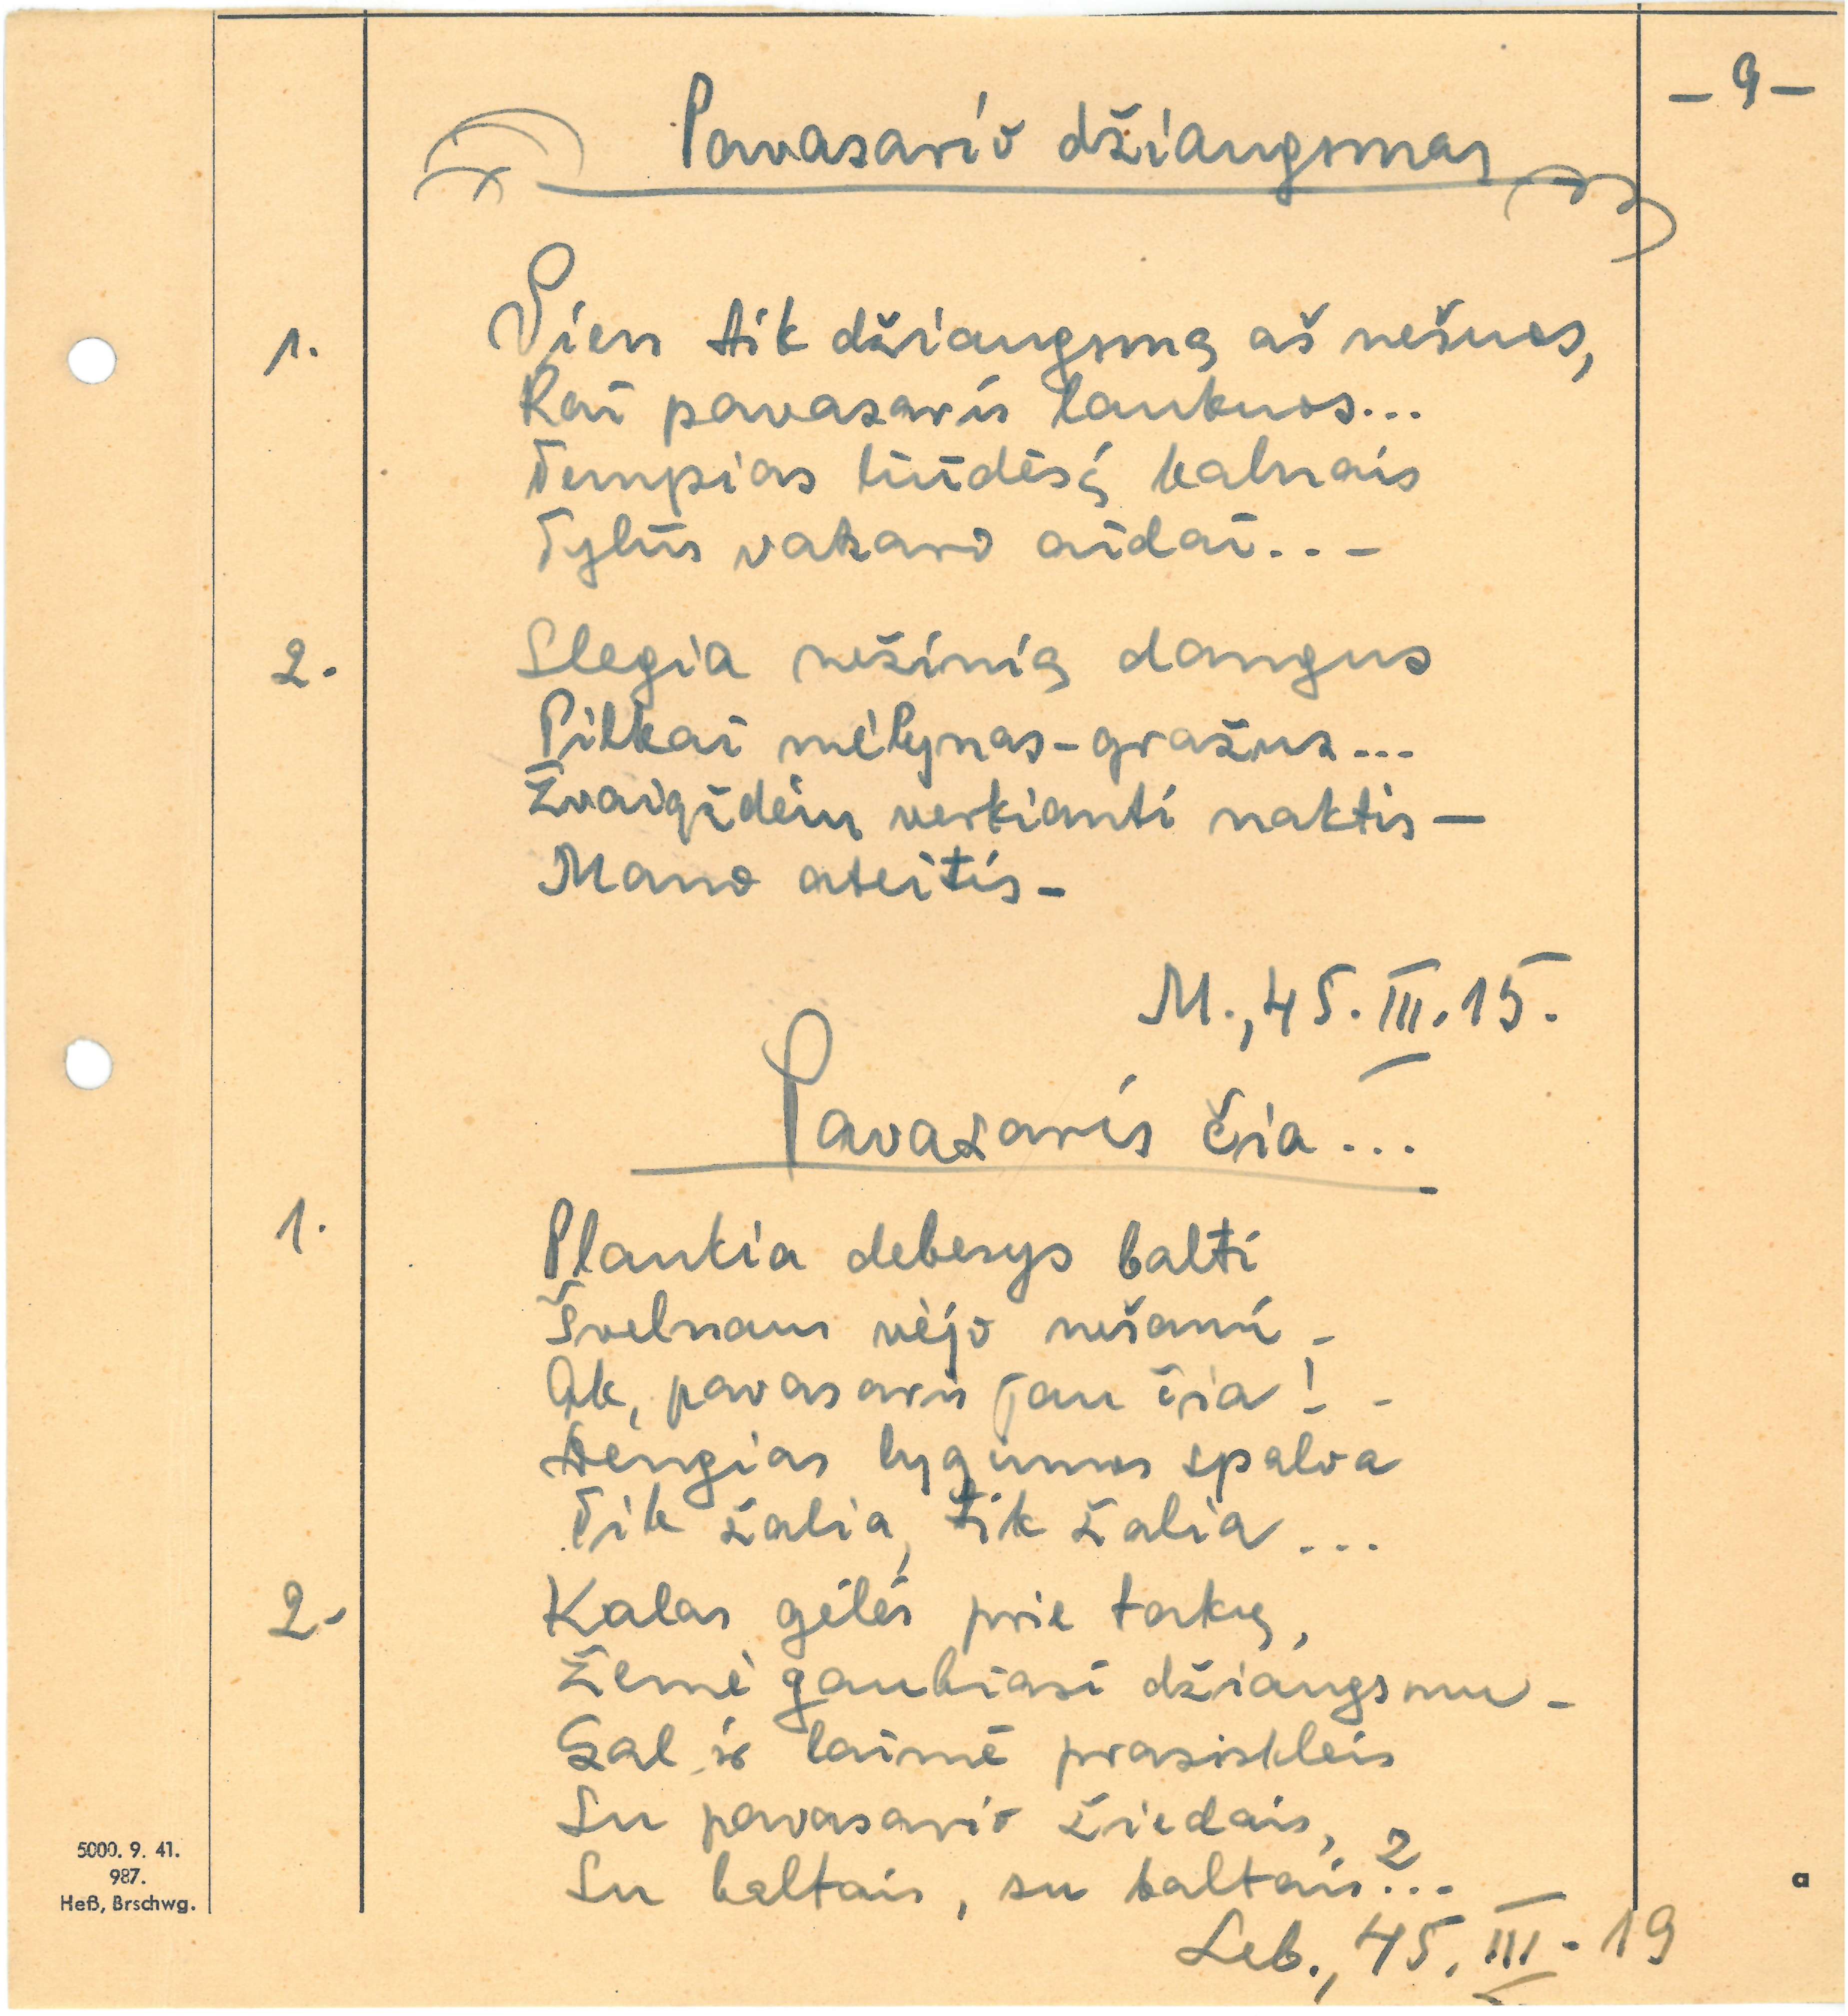 - 9 -
Pavasario džiaugsmas
1. Vien tik džiaugsmą aš nešuos,
Kai pavasaris laukuos...
Tempias liūdesį kalnais
Tylūs vakaro aidai...-
2. Slegia nežinią dangus
Pilkai mėlynas-gražus...
Žvaigždėm verkianti naktis —
Mano ateitis -
M., 45. III. 15.
Pavasaris čia...
1. Plaukia debesys balti
Švelnaus vėjo nešami -
Ak, pavasaris jau čia! -
Dengias lygumos spalva
Tik žalia, tik žalia...
2. Kalas gėlės prie takų,
Žemė gaubiasi džiaugsmu -
Gal ir laimė prasiskleis
Su pavasario žiedais,
Su baltais, su baltais?...
Leb., 45. III - 19
5000. 9. 41.
987.
Heß, Brschwg.
a